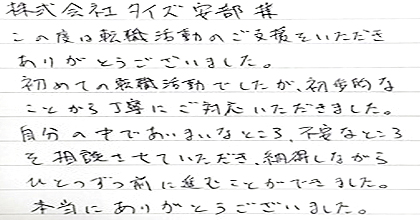 株式会社タイズ 安部様
この度は転職活動のご支援をいただき
ありがとうございました。
初めての転職活動でしたが、初歩的な
ことから丁寧にご対応いただきました。
自分の中であいまいなところ、不安なところ
を相談させていただき、納得しながら
ひとつずつ前に進むことができました。
本当にありがとうございました。